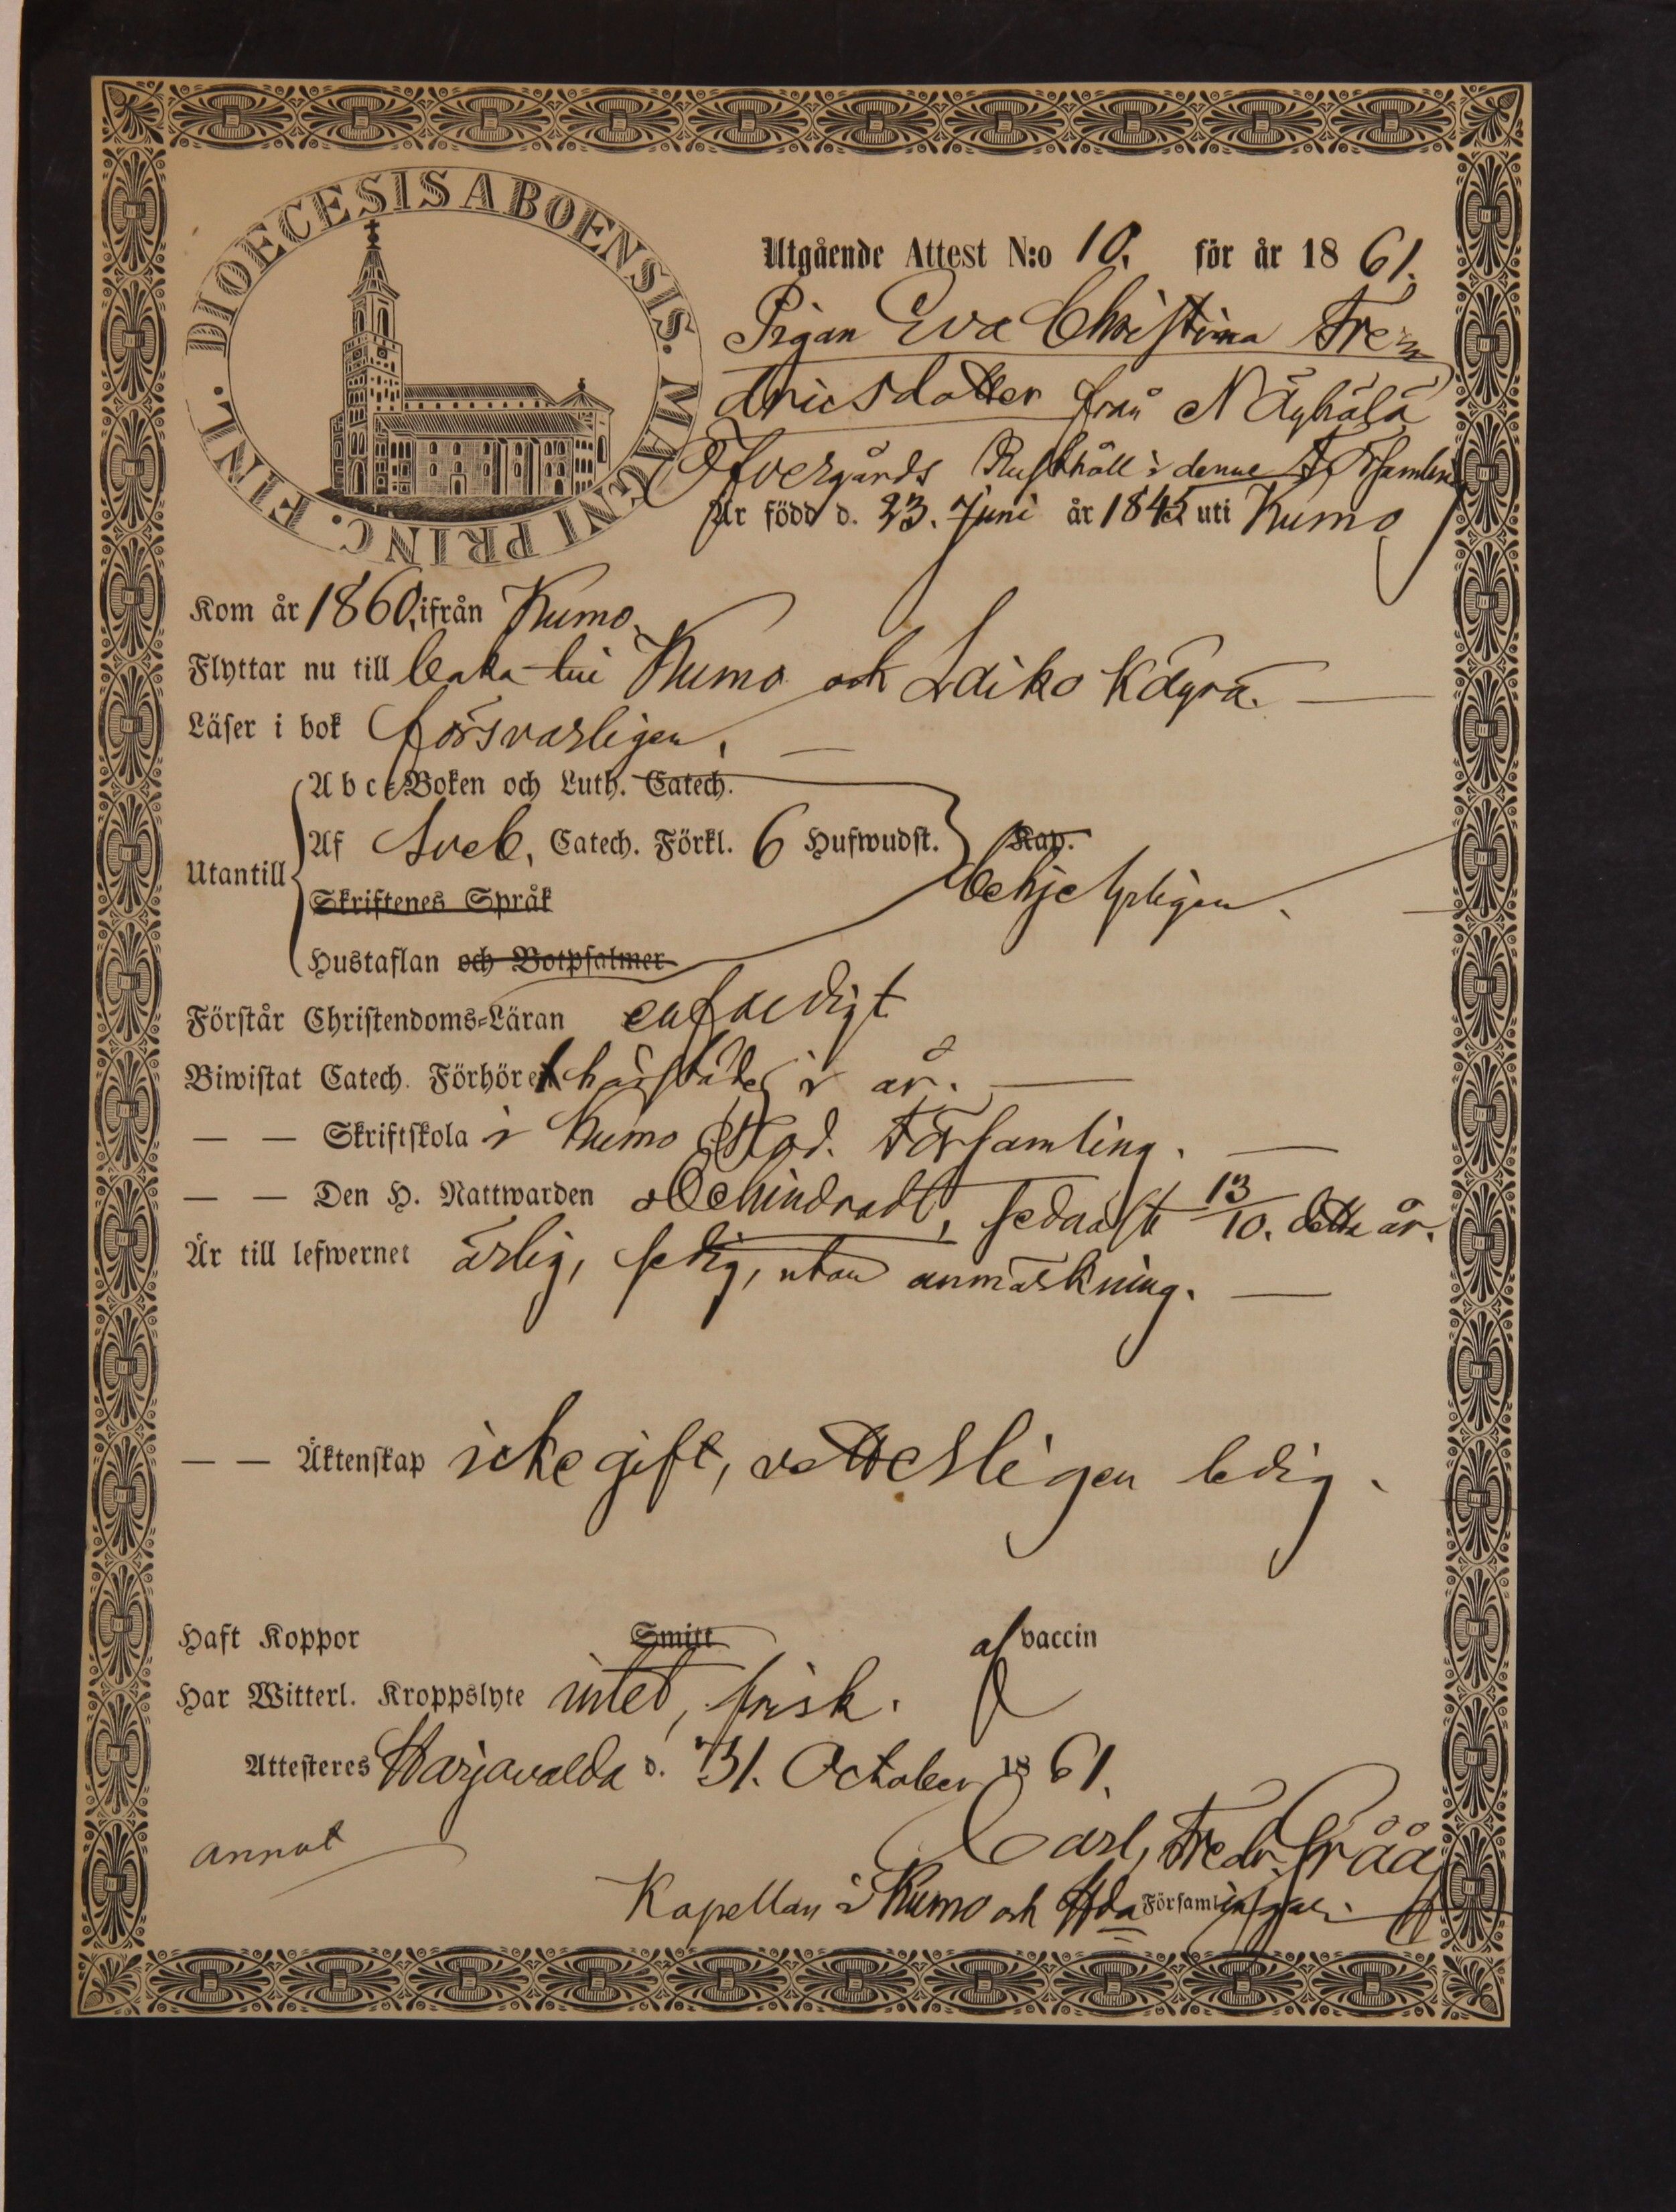 DIOECESIS ABOENSIS. MAGNI PRINC. FINL.
Utgående Attest N:o 10. för år 1861.
Pigan Eva Christina Fre-
dricsdotter från Näyhälä
Öfvergårds Rusthåll i denne Församling
Är född d. 23. Juni år 1842 uti Kumo
Kom år 1860, ifrån Kumo.
Flyttar nu till baka till Kumo och Laiko Käyrä.
Läser i bok försvarligen.
Utantill
Abc-Boken och Luth. Catech.
Af Sveb. Catech. Förkl. 6 Hufwudst. Kap.
behjelpligen.
Skriftenes Språk
Hustaflan och Botpsalmer
Förstår Christendoms-Läran enfaldigt
Biwistat Catech. Förhöret härstädes i år.
— — Skriftskola i Kumo Mod. Församling.
— — Den H. Nattwarden obehindradt, sednast 13/10. detta år.
Är till lefwernet ärlig, sedig, utan anmärkning.
— — Äktenskap icke gift, vetterligen ledig.
Haft Koppor Smitt af vaccin
Har Witterl. Kroppslyte intet, frisk.
Attesteres Harjavalda d. 31. October 1861.
annot
Carl Fredr. Gråå
Kapellan i Kumo och Hda Församlingar.